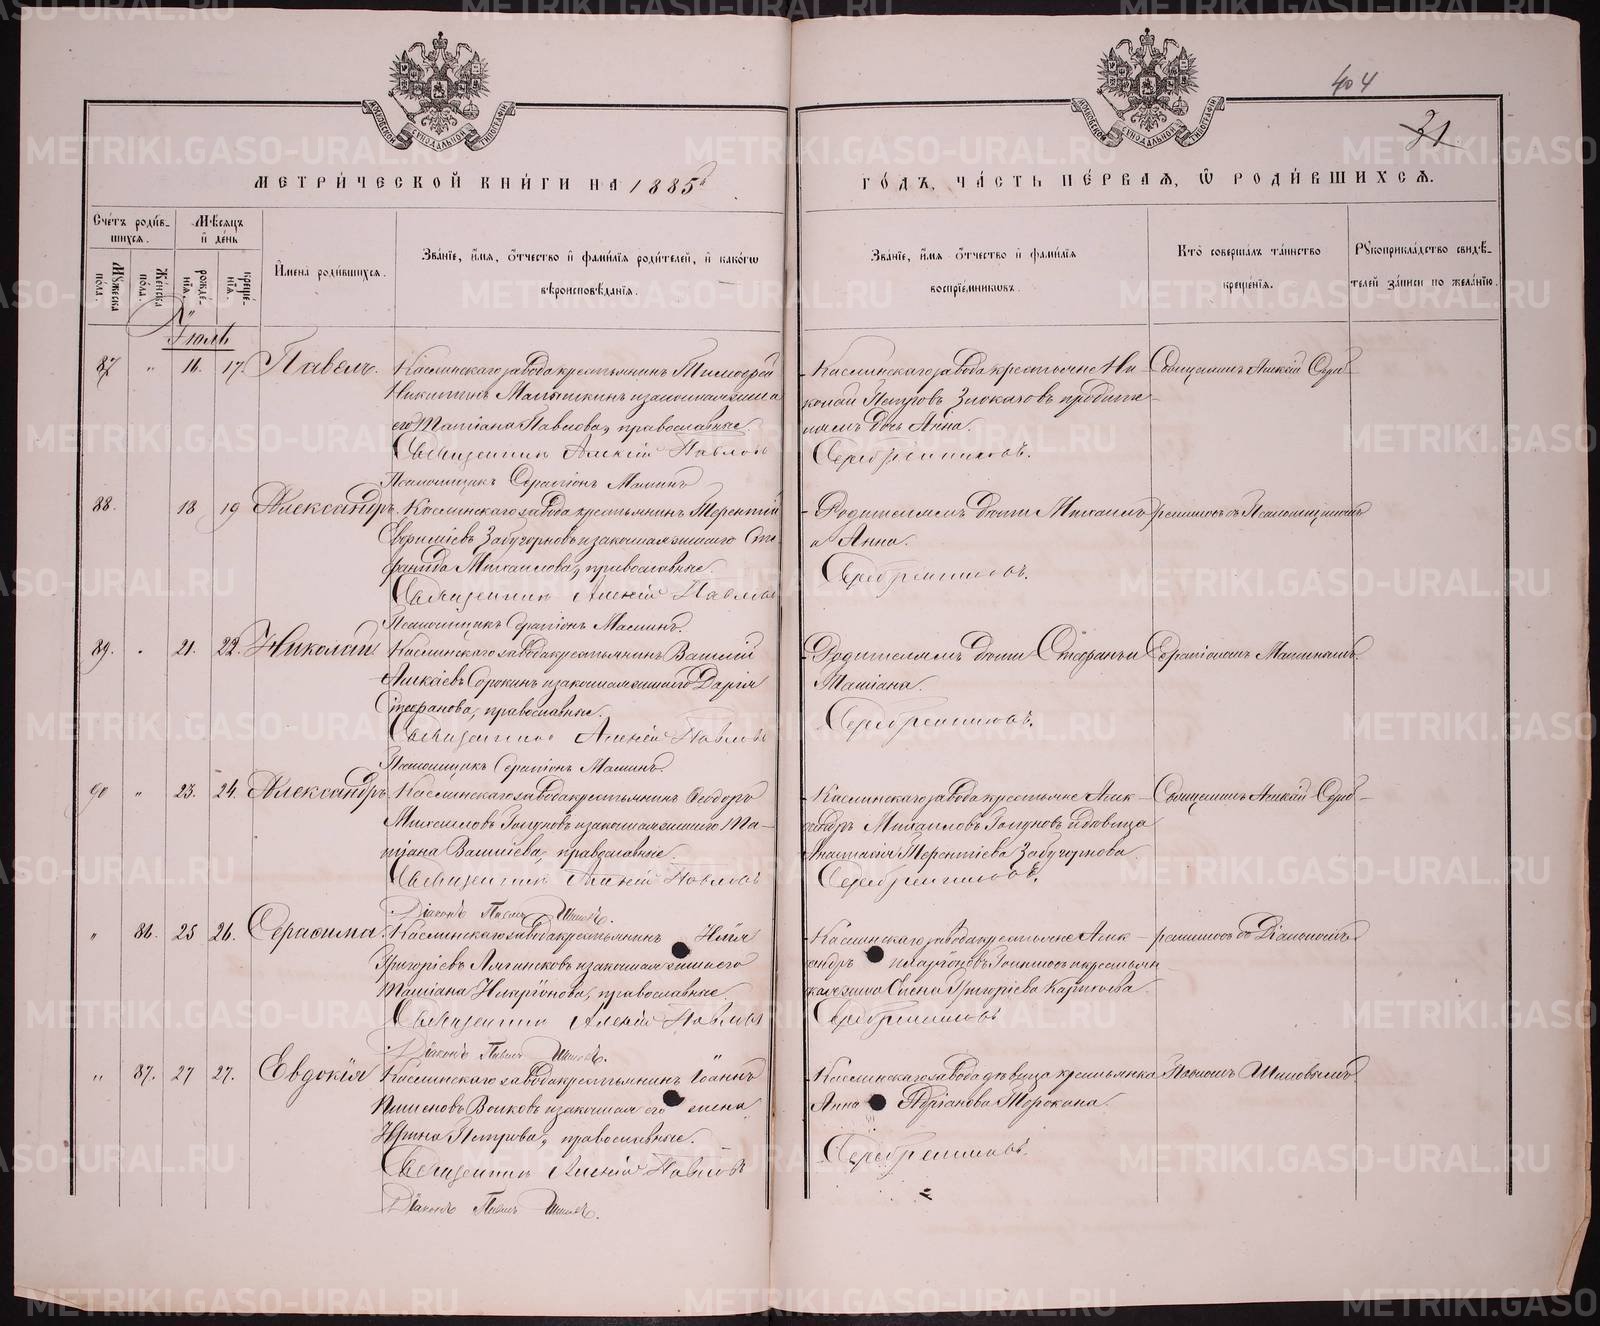 404
31.
МЕТРИ́ЧЕСКОЙ КНИ́ГИ НА 1885й
ГО́ДЪ, ЧА́СТЬ ПЕ́РВАЯ, Ѿ РОДИ́ВШИХСЯ.
Сче́тъ роди́в-
шихся.
Мѣ́сяцъ
и҆ де́нь
Мꙋ́жеска по́ла.
Же́нска по́ла.
рожде́-нїя.
креще́-нїя.
И҆мена̀ роди́вшихся.
Зва́нїе, и҆́мя, ѻ҆́тчество и҆ фами́лїя роди́телей, и҆ како́гѡ
вѣроисповѣ́данїя.
Зва́нїе, и҆́мя ѻ҆́тчество и҆ фами́лїя
воспрїе́мникѡвъ.
Кто̀ соверша́лъ та́инство
креще́нїя.
Рꙋкоприкла́дство свидѣ́-
телей за́писи по жела́нїю.
Іюль
87 " 16. 17. Павелъ.
Каслинскаго завода крестьянинъ Тимоѳей
Никитинъ Малышкинъ и законная жена
его Татіана Павлова, православные.
Священникъ Алексій Павловъ
Псаломщикъ Серапіонъ Маминъ
Каслинскаго завода крестьяне Ни-
колай Петровъ Злоказовъ
дочь Анна.
Серебренниковъ.
Священникъ Алексій Сереб-
88. 18 19 Александръ.
Каслинскаго завода крестьянинъ Терентій
Евѳиміевъ Забугорновъ и законная жена его Сте-
фанида Михаилова, православные.
Священникъ Алексій Павловъ
Псаломщикъ Серапіонъ Маминъ.
Родителямъ дѣти Михаилъ
и Анна.
Серебренниковъ.
ренниковъ съ Псаломщикомъ
89. " 21. 22. Николай
Каслинскаго завода крестьянинъ Василій
Алексѣевъ Сорокинъ и законная жена его Дарія
Стефанова, православные.
Священникъ Алексій Павловъ
Псаломщикъ Серапіонъ Маминъ.
Родителямъ дѣти Стефанъ и
Татіана.
Серебренниковъ.
Серапіономъ Маминымъ.
90 " 23. 24. Александръ
Каслинскаго завода крестьянинъ Ѳеодоръ
Михаиловъ Голуновъ и законная жена его Та-
тіана Василіева, православные.
Священникъ Алексій Павловъ
Діаконъ Павелъ Шиловъ.
Каслинскаго завода крестьяне Алек-
сандръ Михаиловъ Голуновъ и вдовица
Анастасія Терентіева Забугорнова
Серебренниковъ.
Священникъ Алексій Сереб-
" 86. 25 26. Серафима.
Каслинскаго завода крестьянинъ Илія
Григоріевъ и законная жена его
Татіана Иларіонова, православные.
Священникъ Алексій Павловъ
Діаконъ Павелъ Шиловъ.
Каслинскаго завода крестьяне Алек-
сандръ Иларіоновъ и крестьян-
ская жена Елена Григоріева
Серебренниковъ
ренниковъ съ Діакономъ
" 87. 27 27. Евдокія
Каслинскаго завода крестьянинъ Іоаннъ
Пименовъ Волковъ и законная его жена
Ирина Петрова, православные.
Священникъ Алексій Павловъ
Діаконъ Павелъ Шиловъ.
Каслинскаго завода дѣвица крестьянка
Анна
Серебренниковъ.
Павломъ Шиловымъ.